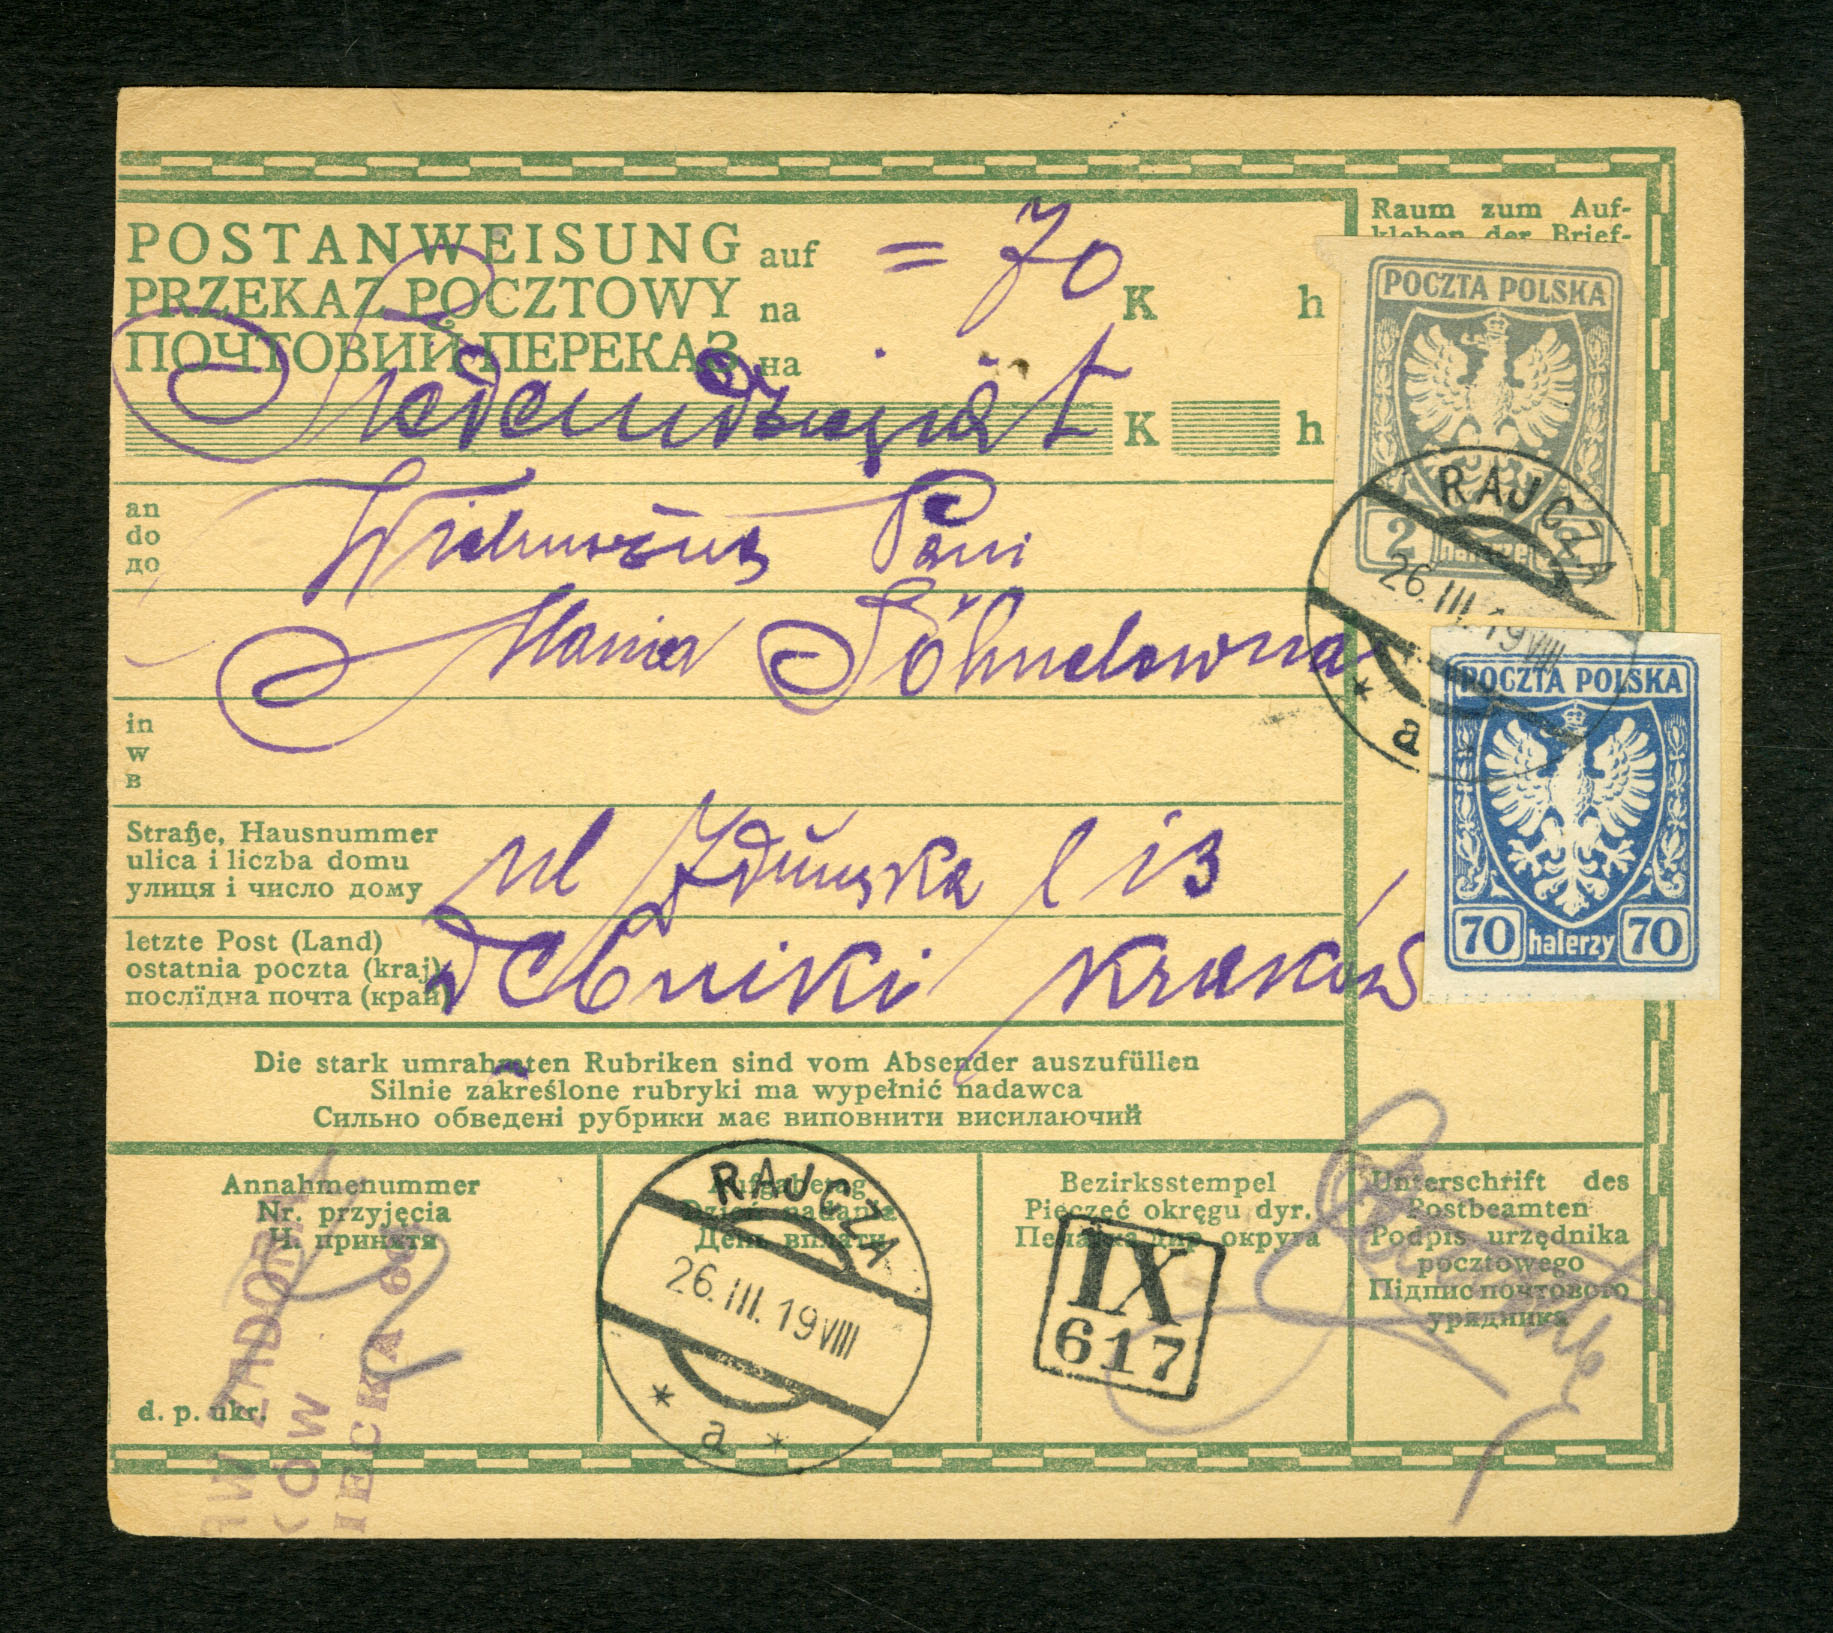 POSTANWEISUNG auf = 70 K h
PRZEKAZ POCZTOWY na
ПОЧТОВИЙ ПЕРЕКАЗ на
Siedemdziesiąt K h
Raum zum Auf-
kleben der Brief-
POCZTA POLSKA
2 halerze
RAJCZA
26.III.19 VIII
* a
POCZTA POLSKA
70 halerzy 70
an
do
до
Wielmożna Pani
Mania
in
w
в
Straße, Hausnummer
ulica i liczba domu
улиця і число дому
ul Zduńska l 13
letzte Post (Land)
ostatnia poczta (kraj)
послїдна почта (край)
Dębniki Kraków
Die stark umrahmten Rubriken sind vom Absender auszufüllen
Silnie zakreślone rubryki ma wypełnić nadawca
Сильно обведені рубрики має виповнити висилаючий
Annahmenummer
Nr. przyjęcia
Ч. принятя
d. p. ukr.
Aufgabetag
Dzień nadania
День вплати
RAJCZA
26.III.19 VIII
* a *
Bezirksstempel
Pieczęć okręgu dyr.
Печатка дир. округа
IX
617
Unterschrift des
Postbeamten
Podpis urzędnika
pocztowego
Підпис почтового
урядника